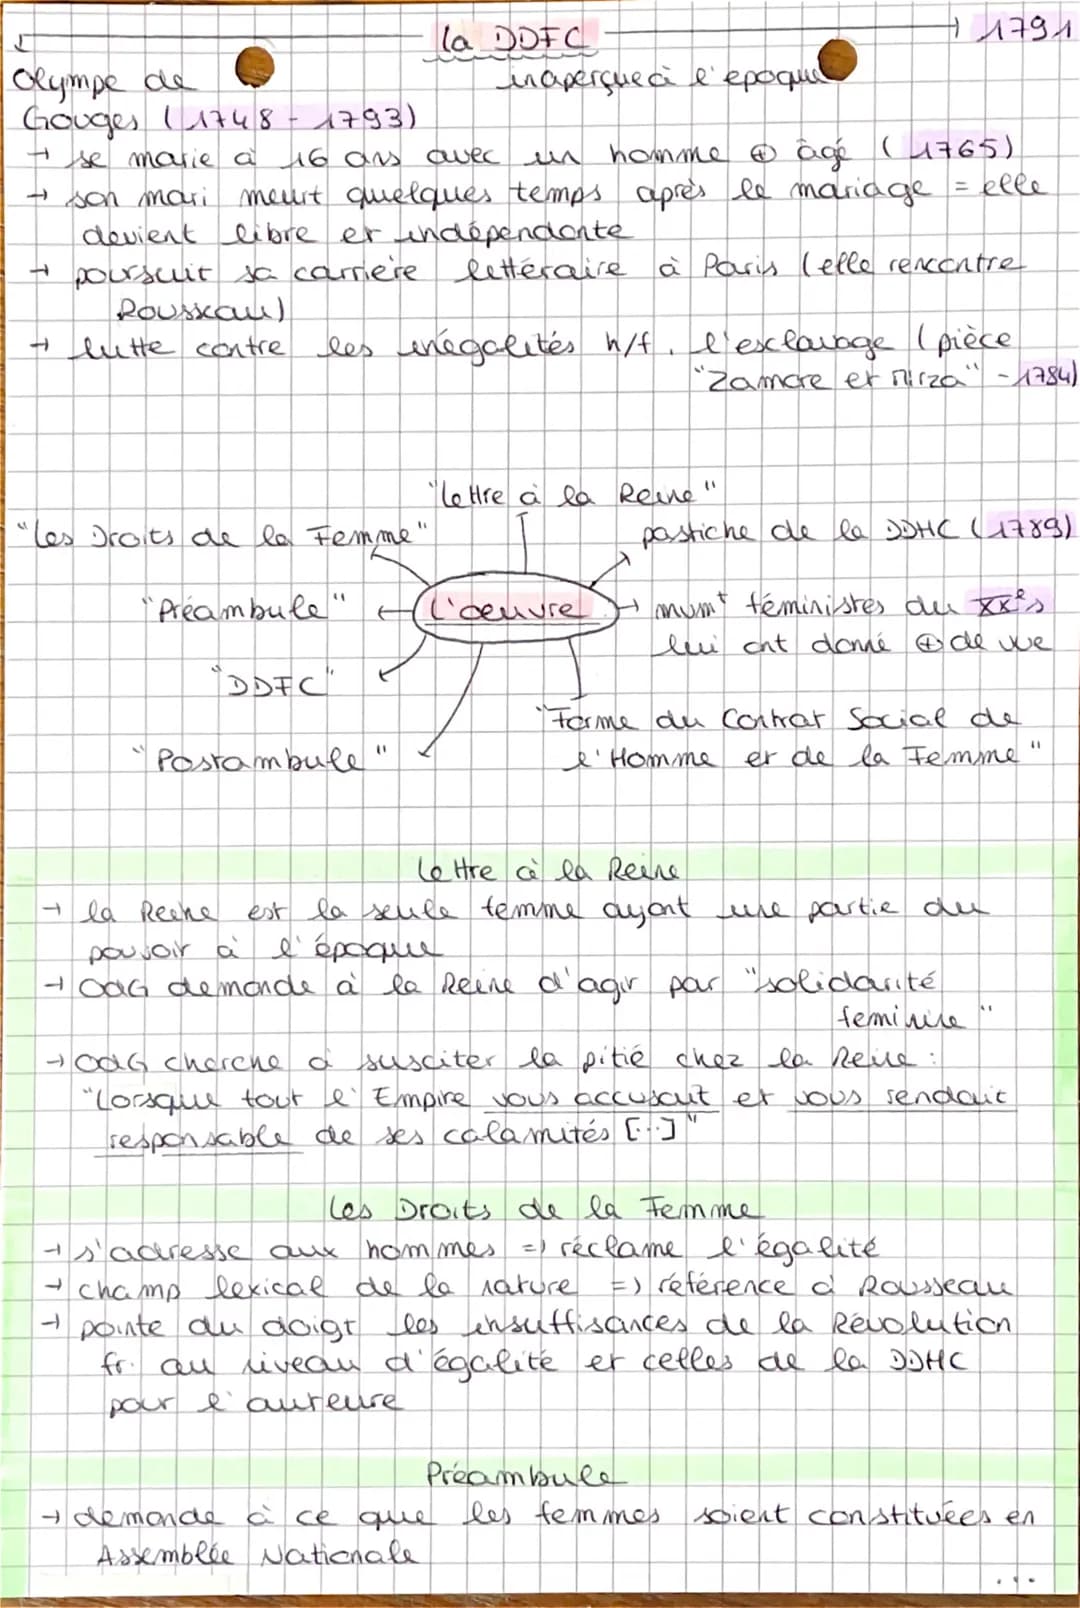 la DDFC → 1791
Olympe de
inaperçue à l'époque
Gouges (1748 - 1793)
→ se marie à 16 ans avec un homme ⊕ âgé (1765)
→ son mari meurt quelques temps après le mariage = elle
devient libre et indépendante
→ poursuit sa carrière littéraire à Paris (elle rencontre
Rousseau)
→ lutte contre les inégalités h/f, l'esclavage (pièce
"Zamore et Mirza" - 1784)
"Lettre à la Reine"
"Les Droits de la Femme"
pastiche de la DDHC (1789)
"Préambule"
L'oeuvre
→ mvmt féministes du XXe s
lui ont donné ⊕ de vue
"DDFC"
"Forme du Contrat Social de
l'Homme et de la Femme"
"Postambule"
Lettre à la Reine
→ la Reine est la seule femme ayant une partie du
pouvoir à l'époque
→ OdG demande à la Reine d'agir par "solidarité
feminine"
→ OdG cherche à susciter la pitié chez la Reine :
"Lorsque tout l'Empire vous accusait et vous rendait
responsable de ses calamités [...]"
Les Droits de la Femme
→ s'adresse aux hommes => réclame l'égalité
→ champ lexical de la nature => référence à Rousseau
→ pointe du doigt les insuffisances de la Révolution
fr. au niveau d'égalité et celles de la DDHC
pour l'auteure
Préambule
→ demande à ce que les femmes soient constituées en
Assemblée Nationale
...